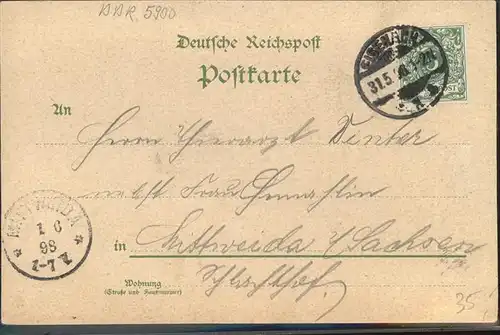 DDR. 5900
Deutsche Reichspost
Postkarte
EISENACH
31.5.98
An
Herrn Thierarzt Winter
nebst Frau Gemahlin
MITTWEIDA
1 6
98
in Mittweida i/Sachsen
Schlachthof.
Wohnung
(Straße und Hausnummer)
35